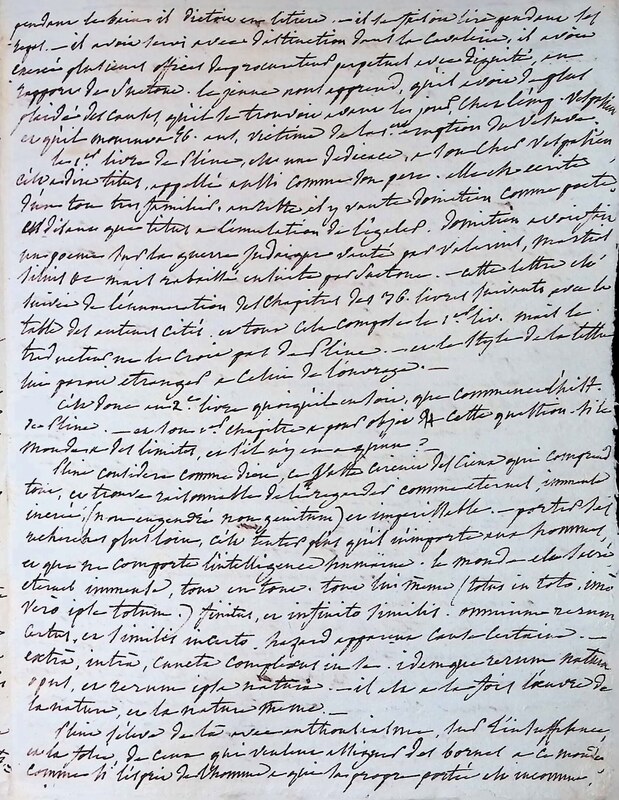 pendant le bain il dictoit en litiere. — il se faisoit lire pendant ses
repas. — il avoit servi avec distinction dans la cavalerie, il avoit
exercé plusieurs offices de procurateur perpetuel avec dignité, au
rapport de Suetone. le jeune nous apprend, qu'il avoit de plus
plaidé des causes, qu'il se trouvoit avant le jour chez l'emp. Vespasien
et qu'il mourut a 56. ans, victime de la eruption du Vesuve.
le 1er livre de Pline, est une dedicace, a son cher Vespasien
c'est a dire titus, appellé aussi comme son pere. elle est ecrite
d'un ton tres familier, au reste il y vante domitien comme poete
disant que titus a l'emulation de l'egaler. domitien avoit fait
un poeme sur la guerre Judaique vanté par Valerius, martial
silius &c mais rabaissé ensuite par suetone. — cette lettre est
suivie de l'enumeration des chapitres des 36. livres suivants avec la
table des auteurs cités. et tout cela compose le 1er liv. mais le
traducteur ne le croit pas de Pline. — et le style de la lettre
lui paroit étranger a celui de l'ouvrage. —
c'est donc au 2e livre quoiqu'il en soit, que commence l'hist.
de Pline. — et son 1er chapitre a pour objet cette question. si le
monde a des limites, et s'il n'y en a qu'un?
Pline considere comme dieu, ce vaste circuit des cieux qui comprend
tout, et trouve raisonnable de le regarder comme eternel, immense
increé; (non engendré non genitum) et imperissable. — porter ses
recherches plus loin, c'est tenter plus qu'il n'importe aux hommes,
et que ne comporte l'intelligence humaine. le monde est sacré
eternel immense, tout en tout. tout lui même (totus in toto, imo
vero ipse totum.) finitus, et infinito similis. omnium rerum
certus, et similis incerto. hazard apparent cause certaine. —
extrà, intrà, cuncta complexus in se. idemque rerum naturæ
opus, et rerum ipsa natura. — il est a la fois l'œuvre de
la nature, et la nature même. —
Pline s'eleve de là avec enthousiasme, sur l'insuffisance
et la folie de ceux qui veulent assigner des bornes a ce monde
comme si l'esprit de l'homme a qui sa propre portée est inconnue,